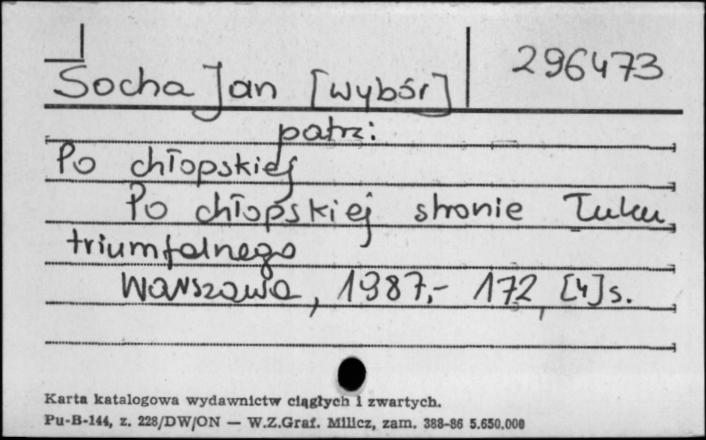 Socha Jan [wybór] 296473
patrz:
Po chłopskiej
Po chłopskiej stronie Łuku
triumfalnego
Warszawa, 1987,- 172, [4]s.
Karta katalogowa wydawnictw ciągłych i zwartych.
Pu-B-144, z. 228/DW/ON — W.Z.Graf. Milicz, zam. 388-86 5.650.000